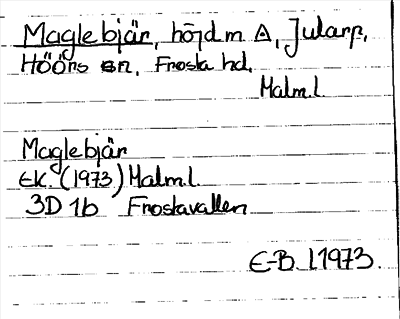 Maglebjär, höjd m ∆, Jularp,
Höörs sn, Frosta hd.
Malm.l.
Maglebjär
Ek. (1973) Malm.l.
3D 1b Frostavallen
E-B. L 1973.